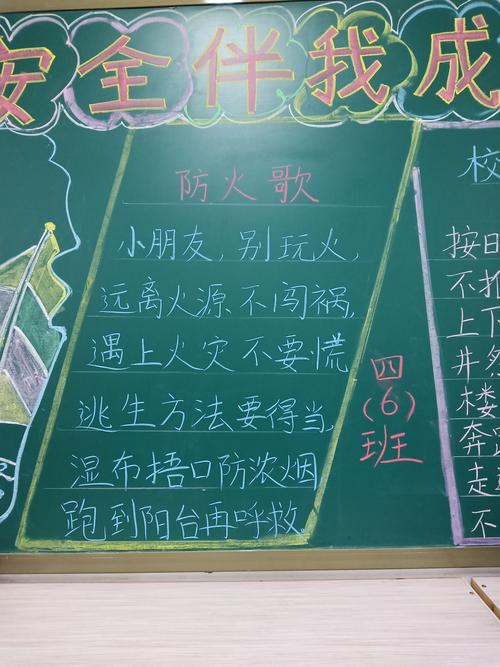 安全伴我成
防火歌
小朋友,别玩火,
远离火源不闯祸,
遇上火灾不要慌
逃生方法要得当,
湿布捂口防浓烟
跑到阳台再呼救。
四
(6)
班
校
按日
不推
上下
井然
楼
奔跑
走
不